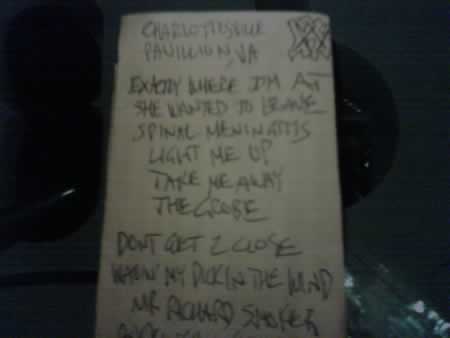 CHARLOTTESVILLE
PAVILLION, VA
EXACTLY WHERE I'M AT
SHE WANTED TO LEAVE
SPINAL MENINGITIS
LIGHT ME UP
TAKE ME AWAY
THE GROBE
DONT GET 2 CLOSE
WAVIN' MY DICK IN THE WIND
MR RICHARD SMOKER